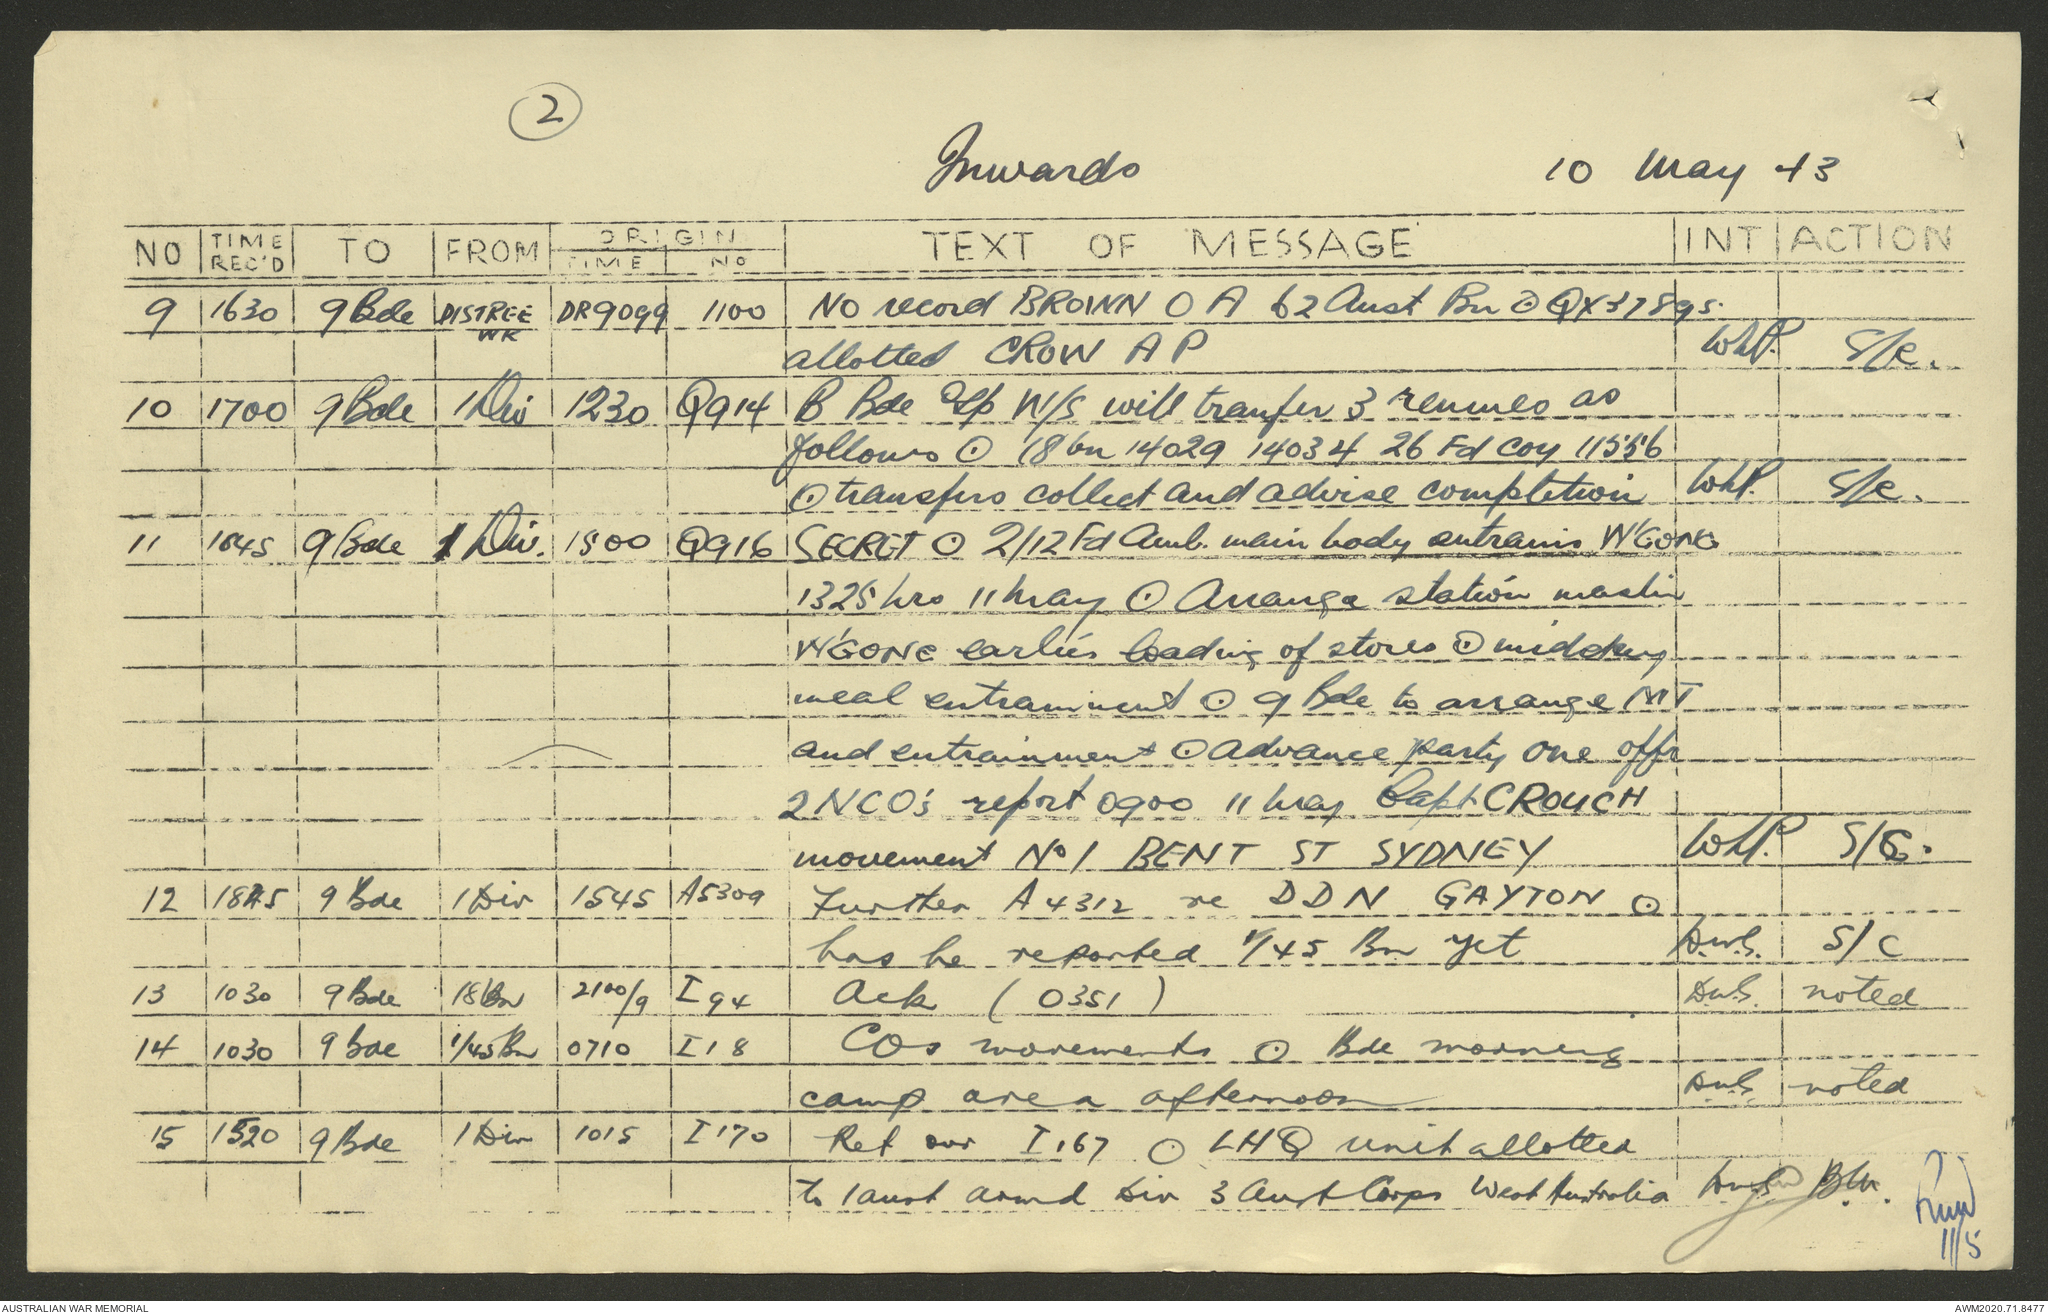 2
Inwards 10 May 43
NO TIME REC'D TO FROM ORIGIN TIME NO TEXT OF MESSAGE INT ACTION
9 1630 9 Bde DISTREE WK DR9099 1100 No record BROWN O A 62 Aust Bn ⊙ QX37895
allotted CROW A P WhP. S/C.
10 1700 9 Bde 1 Div 1230 Q914 B Bde Gp W/S will tranfer 3 remmes as
follows ⊙ 18 bn 14029 14034 26 Fd Coy 11556
⊙ transfers collect and advise completion WhP. S/C.
11 1845 9 Bde 1 Div. 1500 Q916 SECRET ⊙ 2/12 Fd Amb. main body entrains W'GONG
1325 hrs 11 May ⊙ Arrange station master
W'GONG earlier loading of stores ⊙ midday
meal entrainment ⊙ 9 Bde to arrange MT
and entrainment ⊙ advance party one offr
2 NCO's report 0900 11 May Capt CROUCH
movement No 1 BENT ST SYDNEY WhP. S/C.
12 1845 9 Bde 1 Div 1545 A5309 Further A4312 re DDN GAYTON ⊙
has he reported 1/45 Bn yet S/C
13 1030 9 Bde 18 Bn 2100/9 I94 Ack (0351) noted
14 1030 9 Bde 1/45 Bn 0710 I18 COs movements ⊙ Bde morning
camp area afternoon noted
15 1520 9 Bde 1 Div 1015 I170 Ref our I167 ⊙ LHQ unit allotted
to 1 aust armd Div 3 Aust Corps West Australia BM.
11/5
AUSTRALIAN WAR MEMORIAL AWM2020.71.8477